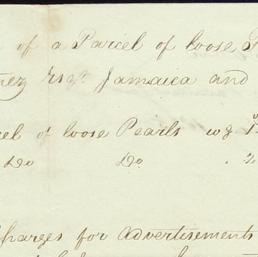 of a Parcel of loose
Esqr. Jamaica and
of loose Pearls wg
Do Do
Charges for Advertisements